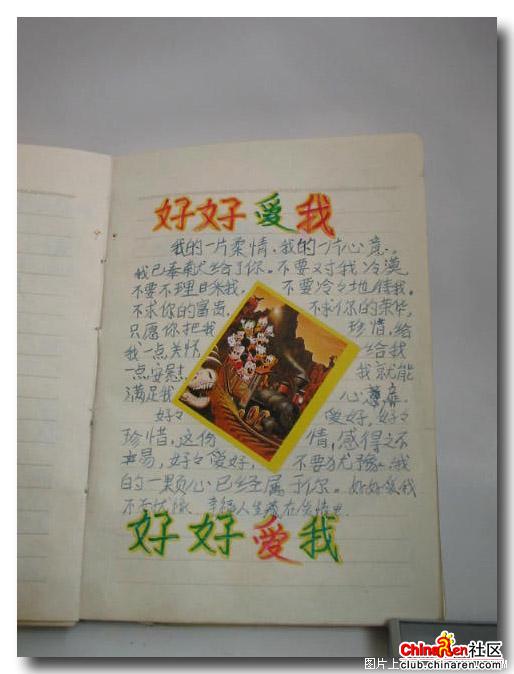 好好爱我
我的一片柔情、我的一片心意。
我已奉献给了你。不要对我冷漠
不要不理目我。不要冷冷地待我。
不求你的富贵，不求你的荣华，
只愿你把我 珍惜，给
我一点关怀 给我
一点安慰 我就能
满足我 心意
好々 爱好，好々
珍惜，这份 情，感得之不
易，好々爱好，不要犹豫，我
的一颗心已经属于你。好好爱我
不 幸福人生 在
好好爱我
ChinaRen社区
club.chinaren.com
图片上